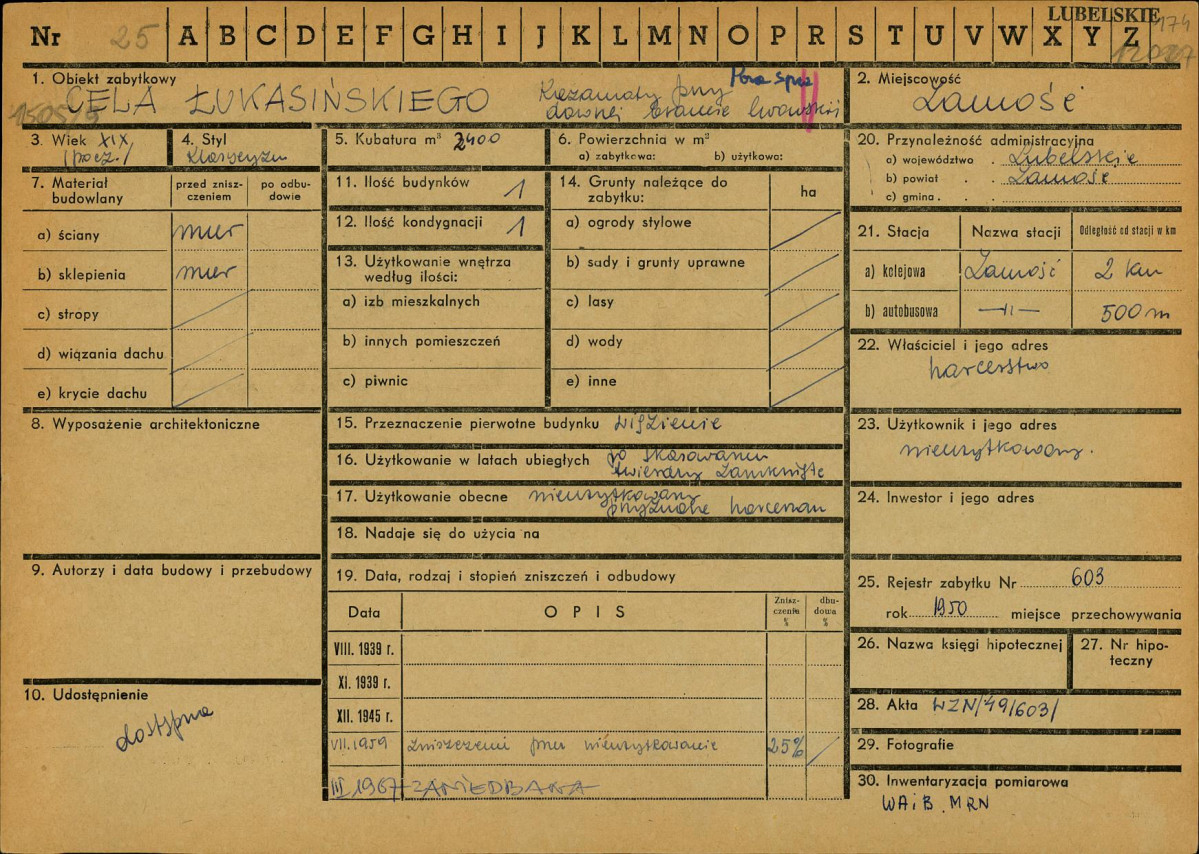 LUBELSKIE 174
Nr 25 A B C D E F G H I J K L M N O P R S T U V W X Y Z
1. Obiekt zabytkowy
CELA ŁUKASIŃSKIEGO Kazamaty przy
dawnej bramie lwowskiej
2. Miejscowość
Zamość
3. Wiek XIX
(pocz.)
4. Styl
Klasycyzm
5. Kubatura m³ 2400
6. Powierzchnia w m²
a) zabytkowa: b) użytkowa:
7. Materiał
budowlany
przed znisz-
czeniem
po odbu-
dowie
a) ściany mur
b) sklepienia mur
c) stropy
d) wiązania dachu
e) krycie dachu
8. Wyposażenie architektoniczne
9. Autorzy i data budowy i przebudowy
10. Udostępnienie
dostępna
11. Ilość budynków 1
12. Ilość kondygnacji 1
13. Użytkowanie wnętrza
według ilości:
a) izb mieszkalnych
b) innych pomieszczeń
c) piwnic
14. Grunty należące do
zabytku:
ha
a) ogrody stylowe
b) sady i grunty uprawne
c) lasy
d) wody
e) inne
15. Przeznaczenie pierwotne budynku więzienie
16. Użytkowanie w latach ubiegłych po skasowaniu
twierdzy zamknięte
17. Użytkowanie obecne nieużytkowany
przyznane harcerzom
18. Nadaje się do użycia na
19. Data, rodzaj i stopień zniszczeń i odbudowy
Data OPIS Znisz-
czenie
%
dbu-
dowa
%
VIII. 1939 r.
XI. 1939 r.
XII. 1945 r.
VII.1959 zniszczenie przez nieużytkowanie 25%
III 1967 ZANIEDBANA
20. Przynależność administracyjna
a) województwo . Lubelskie
b) powiat . . Zamość
c) gmina . . .
21. Stacja Nazwa stacji Odległość od stacji w km
a) kolejowa Zamość 2 km
b) autobusowa —"— 500 m
22. Właściciel i jego adres
harcerstwo
23. Użytkownik i jego adres
nieużytkowany.
24. Inwestor i jego adres
25. Rejestr zabytku Nr 603
rok 1950 miejsce przechowywania
26. Nazwa księgi hipotecznej
27. Nr hipo-
teczny
28. Akta WZN/49/603/
29. Fotografie
30. Inwentaryzacja pomiarowa
WAiB. MRN